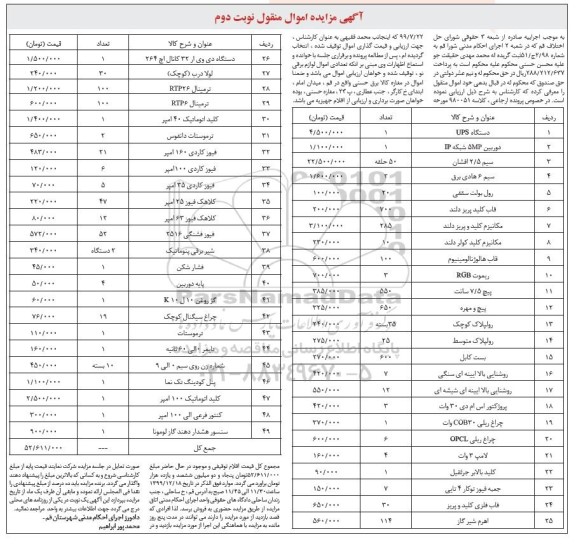 آگهی مزایده اموال منقول نوبت دوم
به موجب اجرائیه صادره از شعبه ۳ حقوقی شورای حل
اختلاف قم که در شعبه ۲ اجرای احکام مدنی شورا قم به
علیه محسن حسنی محکوم علیه محکوم است به پرداخت
حق صندوق که محکوم له در قبال بدهی خود اموال منقول
را معرفی کرده که کارشناس به شرح ذیل ارزیابی نموده
است. در خصوص پرونده ارجاعی، کلاسه ۹۸۰۰۵۱ مورخ
۹۹/۷/۲۲ که اینجانب محمد فقیهی به عنوان کارشناس،
جهت ارزیابی و قیمت گذاری اموال توقیف شده، انتخاب
گردیده ام، پس از مطالعه پرونده و برقراری جلسه با خوانده و
استماع اظهارات وی مبنی بر آنکه تعدادی اموال لوازم برقی
نو، توقیف شده و خواهان ارزیابی اموال می باشد و ضمنا
اموال در مغازه کالا برق حسنی واقع در قم، میدان امام،
خواهان صورت برداری و ارزیابی از اقلام جهیزیه می باشد.
ردیف عنوان و شرح کالا تعداد قیمت (تومان)
۱ دستگاه UPS ۱ ۴/۵۰۰/۰۰۰
۲ دوربین 5MP شبکه IP ۱ ۱/۱۰۰/۰۰۰
۳ سیم ۲/۵ افشان ۵۰ حلقه ۲۲/۵۰۰/۰۰۰
۴ سیم ۶ هادی برق ۲ ۱/۶۰۰/۰۰۰
۵ رول بولت سقفی ۲۰ ۱۰۰/۰۰۰
۶ قاب کلید پریز دلند ۷۰۰ ۲۰۰/۰۰۰
۷ مکانیزم کلید و پریز دلند ۲۸۵ ۳/۱۰۰/۰۰۰
۸ مکانیزم کلید کولر دلند ۱۰ ۲۳۰/۰۰۰
۹ قاب هالوژن آلومینیوم ۱۰۰ ۶۰۰/۰۰۰
۱۰ ریموت RGB ۳ ۷۰۰/۰۰۰
۱۱ پیچ ۷/۵ سانت ۵۵۰ ۳۸۵/۰۰۰
۱۲ پیچ و مهره ۶۵۰ ۳۲۵/۰۰۰
۱۳ رولپلاک کوچک ۳۵بسته ۲۴۰/۰۰۰
۱۴ رولپلاک متوسط ۲۵ ۲۷۵/۰۰۰
۱۵ بست کابل ۶۰۰ ۲۷۰/۰۰۰
۱۶ روشنایی بالا آیینه ای سنگی ۷ ۴۲۰/۰۰۰
۱۷ روشنایی بالا آیینه ای شیشه ای ۱۲ ۵۵۰/۰۰۰
۱۸ پروژکتور اس ام دی ۳۰ وات ۳ ۴۲۰/۰۰۰
۱۹ چراغ ریلی COB۳۰ وات ۱ ۳۷۰/۰۰۰
۲۰ چراغ ریلی OPCL ۶ ۶۰۰/۰۰۰
۲۱ لامپ ۳ وات ۴ ۱۶۰/۰۰۰
۲۲ کلید بالابر جرثقیل ۱ ۹۰/۰۰۰
۲۳ جعبه فیوز توکار ۴ تایی ۷ ۱۵۰/۰۰۰
۲۴ قاب فلزی کلید و پریز ۳۰ ۶۵۰/۰۰۰
۲۵ اهرم شیر گاز ۱۱۴ ۵۶۰/۰۰۰
ردیف عنوان و شرح کالا تعداد قیمت (تومان)
۲۶ دستگاه دی وی آر ۳۲ کانال اچ ۲۶۴ ۱ ۱/۵۰۰/۰۰۰
۲۷ لولا درب (کوچک) ۳۰ ۲۴۰/۰۰۰
۲۸ ترمینال RTP۲۶ ۱۰۰ ۱/۲۰۰/۰۰۰
۲۹ ترمینال RTP۶ ۱۰۰ ۶۰۰/۰۰۰
۳۰ کلید اتوماتیک ۴۰ آمپر ۱ ۱/۴۰۰/۰۰۰
۳۱ ترموستات دانفوس ۲ ۶۵۰/۰۰۰
۳۲ فیوز کاردی ۱۶۰ آمپر ۲۱ ۴۸۳/۰۰۰
۳۳ فیوز کاردی ۱۰۰آمپر ۶ ۱۲۰/۰۰۰
۳۴ فیوز کاردی ۳۵ آمپر ۵ ۷۰/۰۰۰
۳۵ کلاهک فیوز ۲۵ آمپر ۴۷ ۲۲۰/۰۰۰
۳۶ کلاهک فیوز ۶۳ آمپر ۱۲ ۸۰/۰۰۰
۳۷ فیوز فشنگی ۲۵۱۶ ۵۲ ۵۷۲/۰۰۰
۳۸ شیر برقی پنوماتیک ۲ دستگاه ۳۴۰/۰۰۰
۳۹ فشار شکن ۱ ۴۵/۰۰۰
۴۰ پایه دوربین ۴ ۵۰/۰۰۰
۴۱ گاز روغن ۱۰ ال K۱۰ ۱ ۶۰/۰۰۰
۴۲ چراغ سیگنال کوچک ۱۹ ۷۶/۰۰۰
۴۳ ترموستات ۱ ۱۱۰/۰۰۰
۴۴ تایمر ۰ الی ۶۰ ثانیه ۱ ۱۶۰/۰۰۰
۴۵ شماره زن روی سیم ۰ الی ۹ ۱۰ بسته ۴۵۰/۰۰۰
۴۶ پنل کودینگ تک نما ۱ ۱/۱۰۰/۰۰۰
۴۷ کلید اتوماتیک ۱۰۰ آمپر ۱ ۲/۵۰۰/۰۰۰
۴۸ کنتور فرعی الی ۱۰۰ آمپر ۱ ۳۰۰/۰۰۰
۴۹ سنسور هشدار دهنده گاز لومونا ۱ ۹۰۰/۰۰۰
جمع کل --- ۵۲/۶۱۱/۰۰۰
مجموع کل قیمت اقلام توقیفی و موجود در حال حاضر مبلغ
۵۲/۶۱۱/۰۰۰تومان پنجاه و دو میلیون ششصد و یازده هزار
تومان برآورد می گردد. موارد فوق الذکر در تاریخ ۱۳۹۹/۱۲/۱۸
ساعت ۱۱/۳۰ الی ۱۱/۴۵ صبح به آدرس قم،
از طریق مزایده حضوری به فروش برسد. لذا افرادی که
قصد بازدید از مورد مزایده را دارند می توانند در مدت پنج روز
مانده به مزایده با هماهنگی این اجرا از مورد مزایده بازدید و در
صورت تمایل در جلسه مزایده شرکت نمایند قیمت پایه از مبلغ
کارشناسی شروع و به کسانی که بالاترین مبلغ را پیشنهاد دهند
واگذار می گردد. برنده مزایده باید ده درصد از مبلغ پیشنهادی را
فی المجلس ارائه نموده و مابقی آن ظرف یک ماه از تاریخ
مزایده بپردازد این آگهی یک نوبت در یکی از روزنامه های محلی
درج می گردد. جهت اطلاعات بیشتر به واحد اجرا مراجعه نمائید.
دادورز اجرای احکام مدنی شهرستان قم-
محمد پور ابراهیم
ParsNamadData
پایگاه اطلاع رسانی مناقصه و مزایده
۰۲۱-۸۸۳۴۹۶۷۰-۵